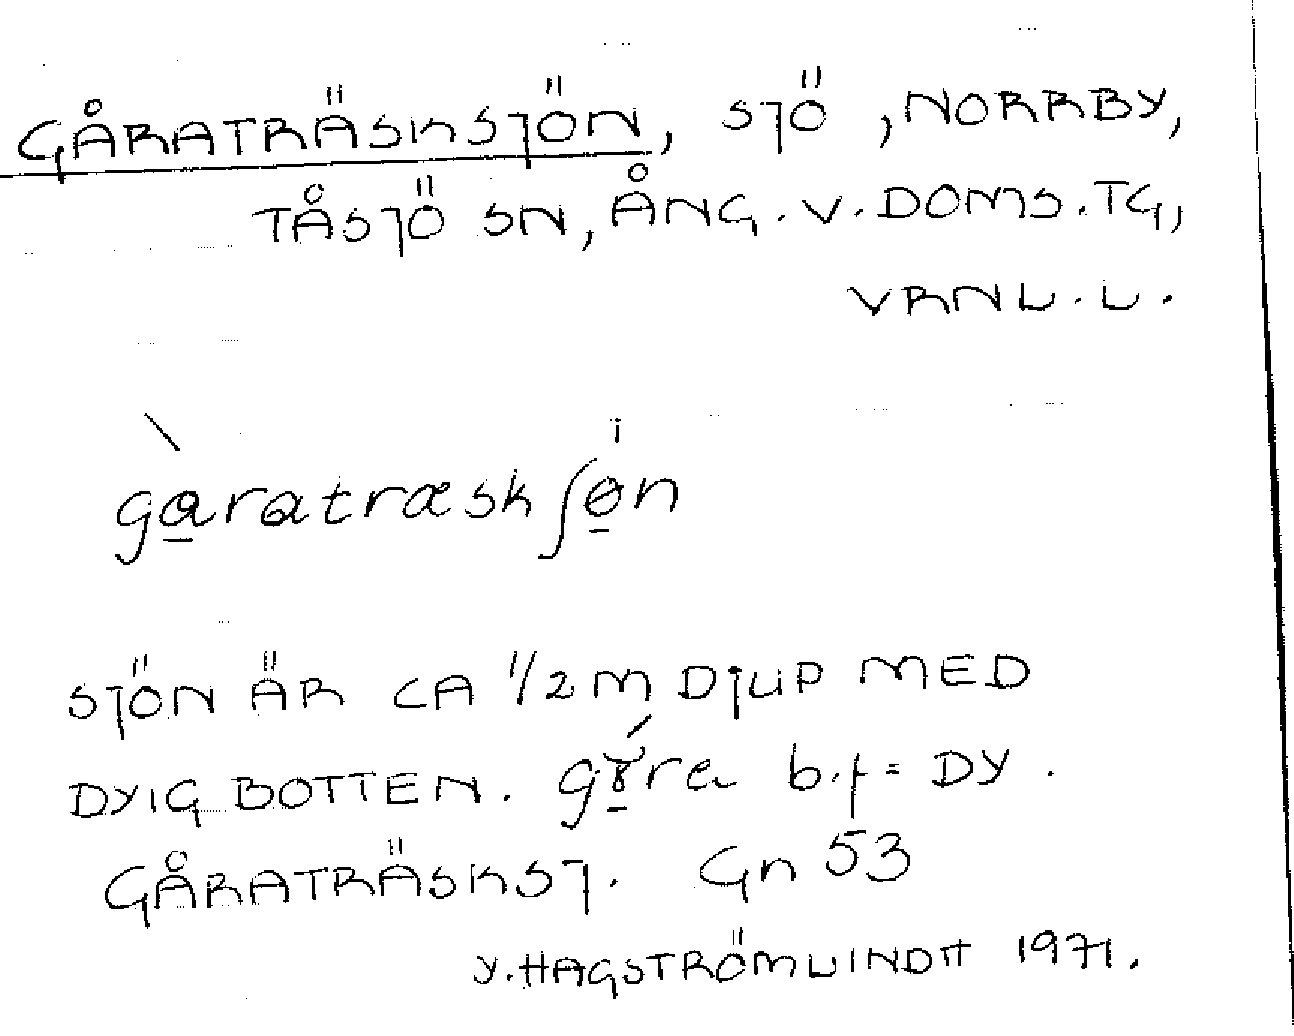 GÅRATRÄSKSJÖN, SJÖ, NORRBY,
TÅSJÖ SN, ÅNG. V. DOMS. TG,
VRNL. L.
garatræskʃøn
SJÖN ÄR CA 1/2 M DJUP MED
DYIG BOTTEN. b.f = DY.
GÅRATRÄSKSJ. Gn 53
Y. HAGSTRÖMLINDH 1971.